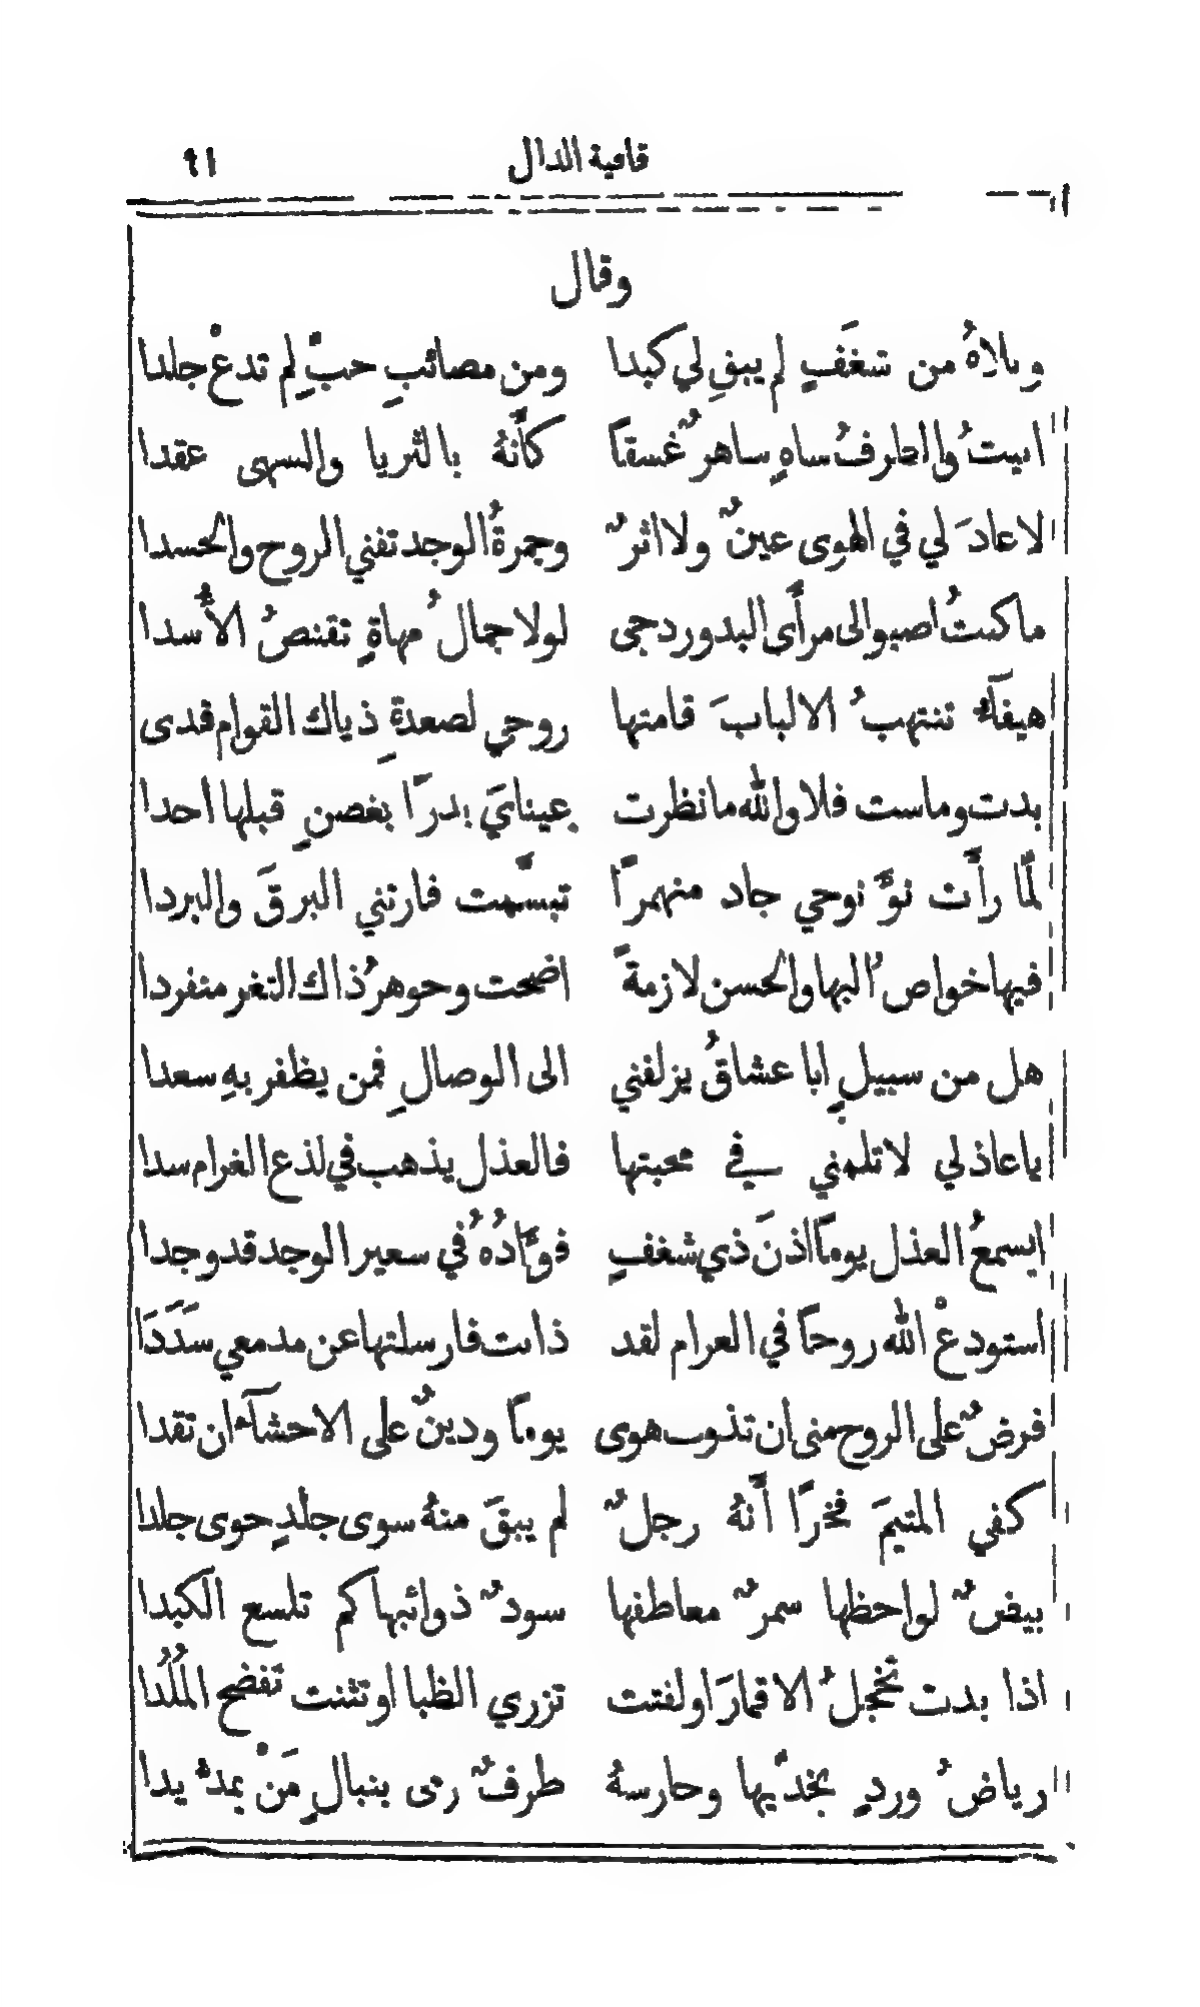 قافية الدال ٩١
وقال
ويلاهُ من شغَفٍ لم يبقِ لي كبدا ومن مصائبِ حبٍّ لم تدعْ جلدا
ابيتُ والطرفُ ساهٍ ساهرٌ غسقاً كأَنهُ بالثريا والسهى عقدا
لا عادَ لي في الهوى عينٌ ولا اثرٌ وجمرةُ الوجد تفني الروح والجسدا
ما كنتُ اصبو الى مرأَى البدور دجى لولا جمالُ مهاةٍ تقنصُ الأُسدا
هيفآءُ تنتهبُ الالبابَ قامتها روحي لصعدةِ ذياك القوام فدى
بدت وماست فلا والله ما نظرت عينايَ بدرًا بغصنٍ قبلها احدا
لمَّا رأَت نوَّ نوحي جاد منهمرًا تبسَّمت فارتني البرقَ والبردا
فيها خواصُ البها والحسن لازمةً اضحت وجوهرُ ذاك الثغر منفردا
هل من سبيلٍ ابا عشاقُ يزلفني الى الوصالِ فمن يظفر بهِ سعدا
يا عاذلي لا تلمني في محبتها فالعذل يذهب في لذع الغرام سدا
ايسمعُ العذل يوماً اذنَ ذي شغفٍ فوَّادُهُ في سعير الوجد قد وجدا
استودعْ الله روحاً في الغرام لقد ذابت فارسلتها عن مدمعي سدَدَا
فرضٌ على الروح مني ان تذوب هوى يوماً ودينٌ على الاحشآء ان تقدا
كفي المتيمَ فخرًا أَنهُ رجلٌ لم يبقَ منهُ سوى جلدٍ حوى جلدا
بيضٌ لواحظها سمرٌ معاطفها سودٌ ذوائبها كم تلسع الكبدا
اذا بدت تُخجلُ الاقمارَ او لفتت تزري الظبا او تثنت تَفضح المُلُدا
رياضُ وردٍ بخدَّيها وحارسهُ طرفٌ رمى بنبالٍ مَنْ يمدُّ يدا